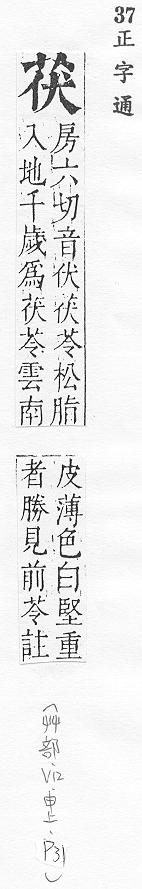 37正字通
茯
房六切音伏茯苓松脂
入地千歲爲茯苓雲南
皮薄色白堅重
者勝見前苓註